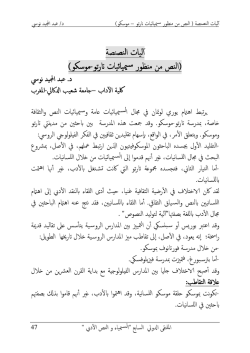 آليات النصنصة ( النص من منظور سيميائيات تارتو – موسكو ) د/ عبد المجيد نوسي
آليات النصنصة
(النص من منظور سيميائيات تارتو-موسكو)
د. عبد المجيد نوسي
كلية الآداب –جامعة شعيب الدكالي-المغرب
يرتبط اهتمام يوري لوتمان في مجال السيميائيات عامة وسيميائيات النص والثقافة
خاصة، بمدرسة تارتو-موسكو. وقد جمعت هذه المدرسة بين باحثين من مدينتي تارتو
وموسكو. ويتعلق الأمر، في الواقع، بإسهام تقليدين ثقافيين في الفكر الفيلولوجي الروسي:
التقليد الأول يجسده الباحثون الموسكوفيتيون الذين ارتبط عملهم، في الأصل، بمشروع
البحث في مجال اللسانيات، فهم أقدموا إلى السيميائيات من خلال اللسانيات.
-أما التيار الثاني، فتجسده مجموعة تارتو التي كانت تشتغل بالأدب، غير أنها اهتمت
باللسانيات.
لقد كان الاختلاف في الأرضية الثقافية غنيا، حيث أدى اللقاء بالنقد الأدبي إلى اهتمام
اللسانيين بالنص والسياق الثقافي. أما اللقاء باللسانيين، فقد نتج عنه اهتمام الباحثين في
مجال الأدب باللغة بصفتها"آلية لتوليد النصوص" .
وقد اعتبر بوريس أو سبانسكي أن التمييز بين المدارس الروسية يتأسس على تقاليد قديمة
راسخة؛ إنه يعود، في الأصل، إلى تقاطب ميز المدارس الروسية خلال تاريخها الطويل:
-من خلال مدرسة فورتانوف بموسكو.
-أما بترسبورغ، فتميزت بمدرسة فيزيلوفسكي.
وقد أصبح الاختلاف جليا بين المدارس الفيلولوجية مع بداية القرن العشرين من خلال
علاقة التقاطب:
-تكونت بموسكو حلقة موسكو اللسانية، وقد اهتموا بالأدب، غير أنهم قاموا بذلك بصفتهم
باحثين في
الملتقى الدولي السابع "السيمياء و النص الأدبي " 47